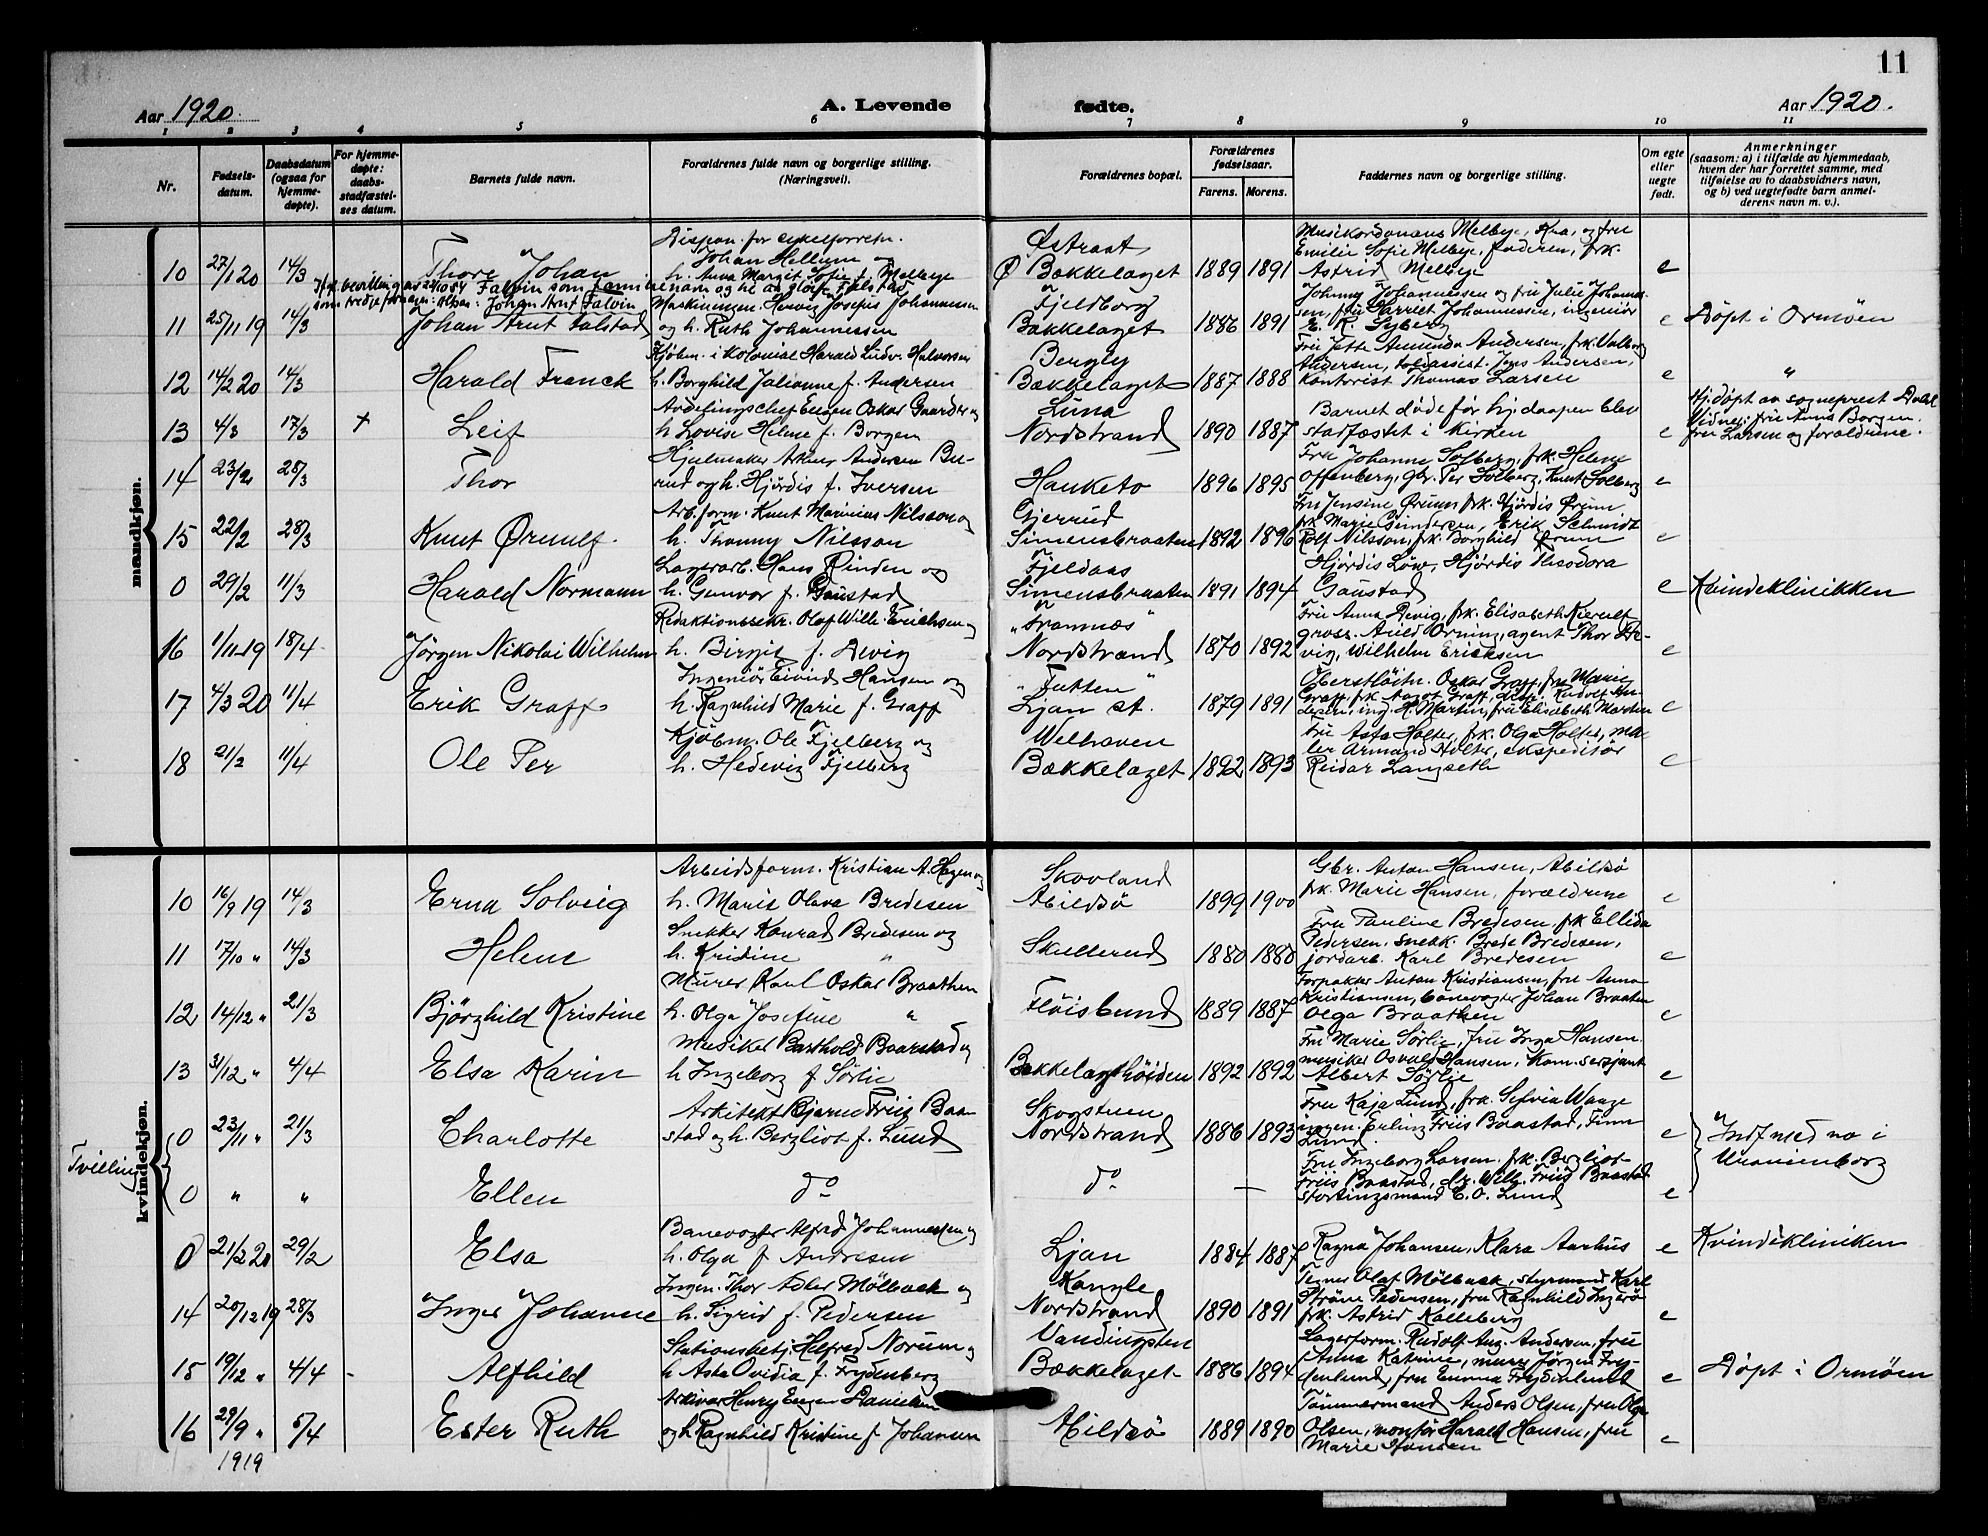 11
Aar 1920. A. Levende fødte. Aar 1920.
1 2 3 4 5 6 7 8 9 10 11
Nr.
Fødsels-
datum.
Daabsdatum
(ogsaa for
hjemme-
døpte).
For hjemme-
døpte:
daabs-
stadfæstel-
ses datum.
Barnets fulde navn.
Forældrenes fulde navn og borgerlige stilling.
(Næringsvei).
Forældrenes bopæl.
Forældrenes
fødselsaar.
Farens. Morens.
Faddernes navn og borgerlige stilling.
Om egte
eller
uegte
født.
Anmerkninger
(saasom: a) i tilfælde av hjemmedaab,
hvem der har forrettet samme, med
tilføielse av to daabsvidners navn,
og b) ved uegtefødte barn anmel-
derens navn m. v.).
mandkjøn.
10 27/1 20 14/3 Thore Johan
Dispon. for cykelforretn.
Johan Hellum og
h. Anna Margit Sofie f. Melbye
Østraat
Ø Bækkelaget 1889 1891
Emilie Sofie Melbye, faderen, frk.
Astrid Melbye e
Falvin som familienavn og
Johan Arnt Falvin
11 25/11 19 14/3 Johan Arnt Falstad
Johannessen
og h. Ruth Johannessen
Fjeldborg
Bækkelaget 1886 1891
Johnny Johannessen og fru Julie Johannes-
sen, fru Harriet Johannessen, ingeniør
e Døpt i Ormøen
12 14/2 20 14/3 Harald Franck
Kjøbm. i kolonial Harald Ludv. Halvorsen
h. Borghild Julianne f. Andersen
Bergly
Bækkelaget 1887 1888
Fru Jette Amunda Andersen, frk. Valborg
Andersen, toldassist. Jens Andersen,
Kontorist Thomas Larsen e "
13 4/3 17/3 + Leif
Avdelingschef Eugen Oskar Gaarder og
h. Lovise Helene f. Borgen
Luna
Nordstrand 1890 1887
Barnet døde før hj.daapen blev
stadfæstet i kirken e
Hj.døpt av sogneprest Dahl
Vidner: fru Anna Borgen
fru Larsen og forældrene.
14 23/2 28/3 Thor
Hjulmaker Andersen Bu-
rud og h. Hjørdis f. Iversen
Hauketo 1896 1895
Fru Johanne Solberg, frk. Helene
Offenberg, Gbr. Per Solberg, Knut Solberg e
15 22/2 28/3 Knut Ørnulf
Arb.form. Knut Marinius Nilsson og
h. Thonny Nilsson
Gjerrud
Simensbraaten 1892 1896
Fru Jensine Ørum, frk. Hjördis Ørum
frk. Marie Gundersen, Erik Schmidt
Rolf Nilsson, frk. Borghild Ørum e
0 29/2 11/3 Harald Normann
Lagerarb. Hans Rinden og
h. Gunvor f. Gaustad
Fjeldaas
Simensbraaten 1891 1894
Hjördis Löw, Hjördis Theodora
Gaustad e Kvindeklinikken
16 1/11-19 18/4 Jørgen Nikolai Wilhelm
Redaktionssekr. Olaf Willi. Erichsen og
h. Birgit f. Devig
"Framnæs"
Nordstrand 1870 1892
Fru Anna Devig, frk. Elisabeth Kierulf,
gross. Orning, agent Thor De-
vig, Wilhelm Ericksen e
17 4/3 20 11/4 Erik Graff
Ingeniør Eivind Hansen og
h. Ragnhild Marie f. Graff
"Tutten"
Ljan st. 1879 1891
Oberstløitn. Oskar Graff, fru Marie
Graff, frk. Aagot Graff, disp. Rudolf An-
dersen, ing. H. Martin, fru Elisabeth Martin e
18 21/2 11/4 Ole Per
Kjöbm. Ole Fjelberg og
h. Hedevig Fjelberg
Welhaven
Bækkelaget 1892 1893
fru Asta Holter, frk. Olga Holter, ma-
ler Armand Holter, ekspeditör
Reidar Langseth e
kvindekjøn.
10 16/9 19 14/3 Erna Solveig
Arbeidsform. Kristian A. Hagen og
h. Marie Olava Bredesen
Skovland
Abildsö 1899 1900
Gbr. Anton Hansen, Abildsö
frk. Marie Hansen, forældrene e
11 17/10 " 14/3 Helene
Snekker Konrad Bredesen og
h. Kristine "
Skullerud 1880 1880
Fru Pauline Bredesen, frk Ellida
Pedersen, snekk. Brede Bredesen,
jordarb. Karl Bredesen e
12 14/12 " 21/3 Bjørghild Kristine
Murer Karl Oskar Braathen
h. Olga Josefine "
Fløisbund 1889 1887
Forpakter Anton Kristiansen, fru Anna
Kristiansen, banevogter Johan Braaten
Olga Braathen e
13 31/12 " 4/4 Elsa Karin
Musiker Barthold Baarstad og
h Ingeborg f Sörlie
Bækkelagshöiden 1892 1892
Fru Marie Sörlie, fru Inga Hansen
musiker Osvald Hansen, kom.sersjant
Albert Sörlie e
Tvilling
0 23/11 " 21/3 Charlotte
Arkitekt Bjarne Friis Baa-
stad og h. Bergliot f. Lund
Skogstuen
Nordstrand 1886 1893
Fru Kaja Lund, frk. Sylvia Waage
ingen. Erling Friis Baastad, Finn
Lund. e
Indf med no i
Uranienborg
0 " " Ellen do do —
Fru Ingeborg Larsen, frk. Bergliot
Friis Baastad, dr. Wilh. Friis Baastad
stortingsmand E. O. Lund e
0 21/2 20 29/2 Elsa
Banevogter Alfred Johannessen og
h. Olga f Andresen
Ljan 1884 1887
Ragna Johansen, Klara Aarhus e Kvindekliniken
14 20/12 19 28/3 Inger Johanne
Ingen. Thor Adler Mölback og
h. Sigrid f. Pedersen
Kangle
Nordstrand 1890 1891
Tegner Olaf Mölback, styrmand Karl
Ströne Pedersen, fru Ragnhild Ingerö
frk. Astrid Kalleberg e
15 19/12 " 4/4 - Alfhild
Stationsbetj. Helfred Norum og
h Asta Ovidia f. Frydenberg
Vandingsten
Bækkelaget 1886 1894
Lagerform. Rudolf Aug. Andersen, fru
Anna Katrine, murer Jörgen Fry-
denlund, fru Emma Frydenlund e Døpt i Ormøen
16 29/9 " 5/4 Ester Ruth
1919
Arkivar Henry Eugen Danielsen
og h Ragnhild Kristine f Johansen
Abildsö 1889 1890
Tömmermand Anders Olsen, fru Olga
Olsen, montör Harald Hansen, fru
Marie Hansen e